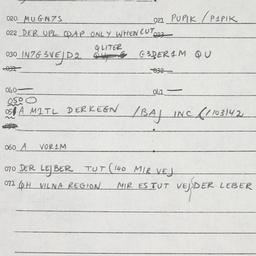 020 MUGN7S 021 PUPIK / P1PIK
022 DER UPL QDAP ONLY WHEN CUT 023
GLITER
030 IN7G3VEJD2 G3DER1M QU
032 032
040 041
050
A M2TL DERKEGN / BAJ INC (/103)42
060 A VOR1M
070 DER LEJBER TUT (140 MIR VEJ
072 QH VILNA REGION MIR ES TUT VEJ DER LEBER